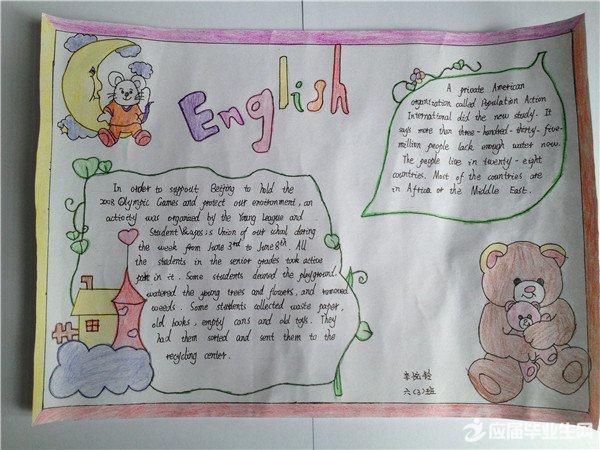 English
A private American
organization called Population Action
International did the new study. It
says more than three-hundred-thirty-five-
million people lack enough water now.
The people live in twenty-eight
countries. Most of the countries are
in Africa or the Middle East.
In order to support Beijing to hold the
2008 Olympic Games and protect our environment, an
activity was organized by the Young League and
Student Union of our school during
the week from June 3rd to June 8th. All
the students in the senior grades took active
part in it. Some students cleaned the playground,
watered the young trees and flowers, and removed
weeds. Some students collected waste paper,
old books, empty cans and old toys. They
had them sorted and sent them to the
recycling center.
六(3)班
应届毕业生网